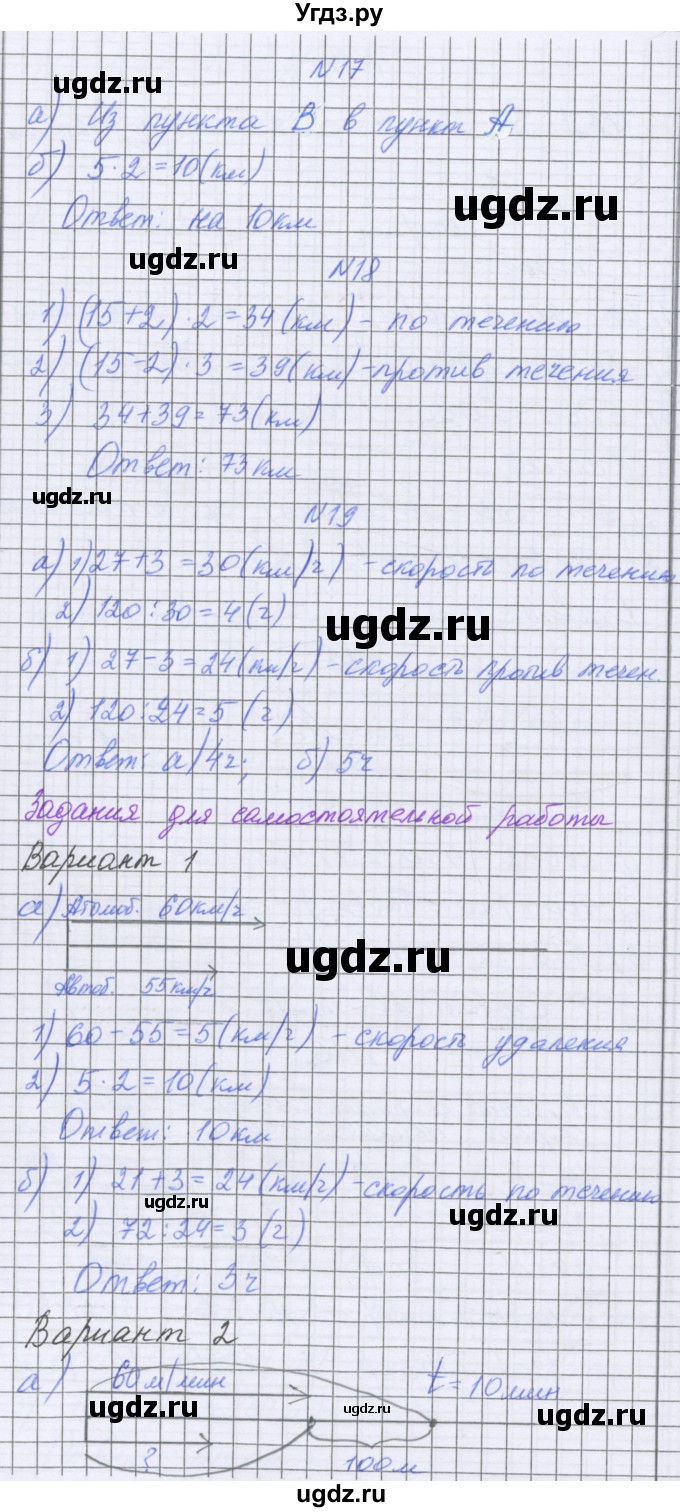 Угдз.ру
N17
ugdz.ru
а) Из пункта В в пункт А.
б) 5·2=10(км)
ugdz.ru
Ответ: на 10км
ugdz.ru
N18
1) (15+2)·2=34(км)- по течению
2) (15-2)·3=39(км)-против течения
3) 34+39=73(км)
Ответ: 73км
ugdz.ru
N19
а) 1)27+3=30(км/ч) -скорость по течению
2) 120:30=4(ч)
ugdz.ru
б) 1) 27-3=24(км/ч)-скорость против течен.
2) 120:24=5(ч)
Ответ: а) 4ч; б) 5ч
Задания для самостоятельной работы
Вариант 1
а) Атомоб. 60км/ч
ugdz.ru
Автоб. 55км/ч
1) 60-55=5(км/ч) -скорость удаления
2) 5·2=10(км)
Ответ: 10км
б) 1) 21+3=24(км/ч)-скорость по течению
ugdz.ru
ugdz.ru
2) 72:24=3(ч)
Ответ: 3ч
Вариант 2
а) 60м/мин t=10мин
ugdz.ru
ugdz.ru
ugdz.ru
? 100м
ugdz.ru